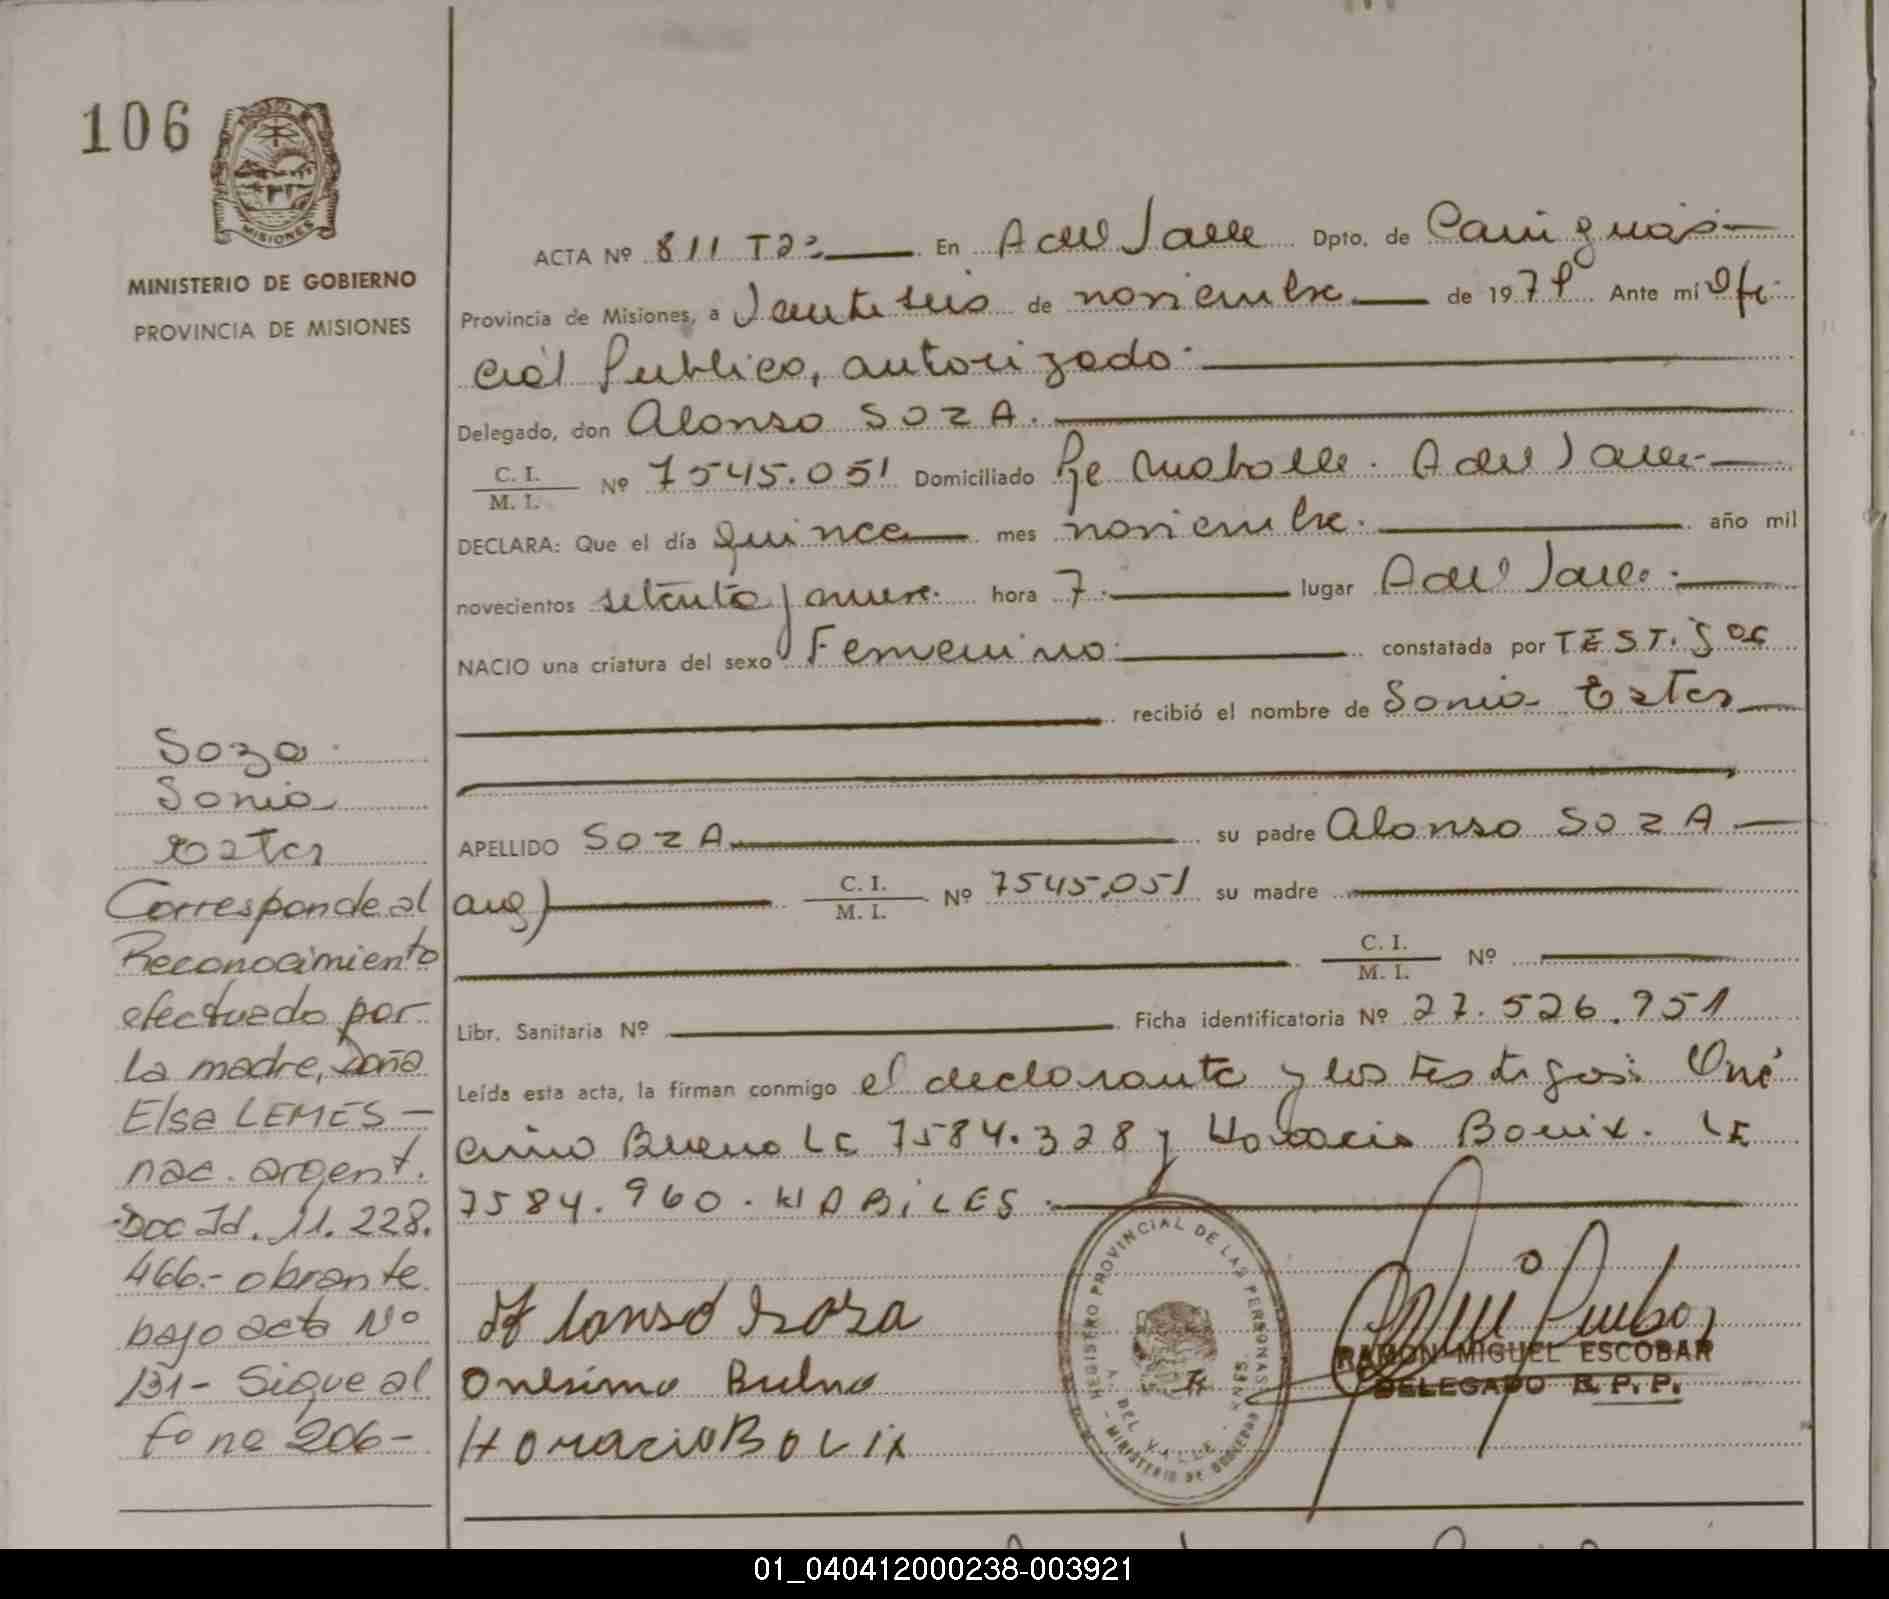 106
MISIONES
MINISTERIO DE GOBIERNO
PROVINCIA DE MISIONES
ACTA Nº 811 T2: En A del Valle Dpto. de Cainguás
Provincia de Misiones, a Veintiseis de noviembre de 1979 Ante mí Ofi
cial Publico, autorizado.
Delegado, don Alonso SOZA.
C. I.
M. I. Nº 7545.051 Domiciliado A del Valle
DECLARA: Que el día quince mes noviembre. año mil
novecientos setenta y nueve. hora 7. lugar A del Valle.
NACIO una criatura del sexo Femenino. constatada por TEST.
recibió el nombre de Sonia Ester
APELLIDO SOZA su padre Alonso SOZA
arg) C. I.
M. I. Nº 7545.051 su madre
C. I.
M. I. Nº
Libr. Sanitaria Nº Ficha identificatoria Nº 27.526.951
Leída esta acta, la firman conmigo el declarante y los testigos: One
cimo Bueno LE 7584.328 y Horacio Bovix. LE
7584.960. HABILES.
Soza
Sonia
Ester
Corresponde al
Reconocimiento
efectuado por
La madre, doña
Elsa LEMES -
nac. argent.
Doc Id. 11.228.
466.- obrante
bajo acta Nº
131 - Sigue al
fo no 206 -
Alonso Soza
Onesimo Bueno
Horacio Bovix
REGISTRO PROVINCIAL DE LAS PERSONAS
A. DEL VALLE - MNES.
- MINISTERIO DE GOBIERNO
RAMON MIGUEL ESCOBAR
DELEGADO R. P. P.
01_040412000238-003921